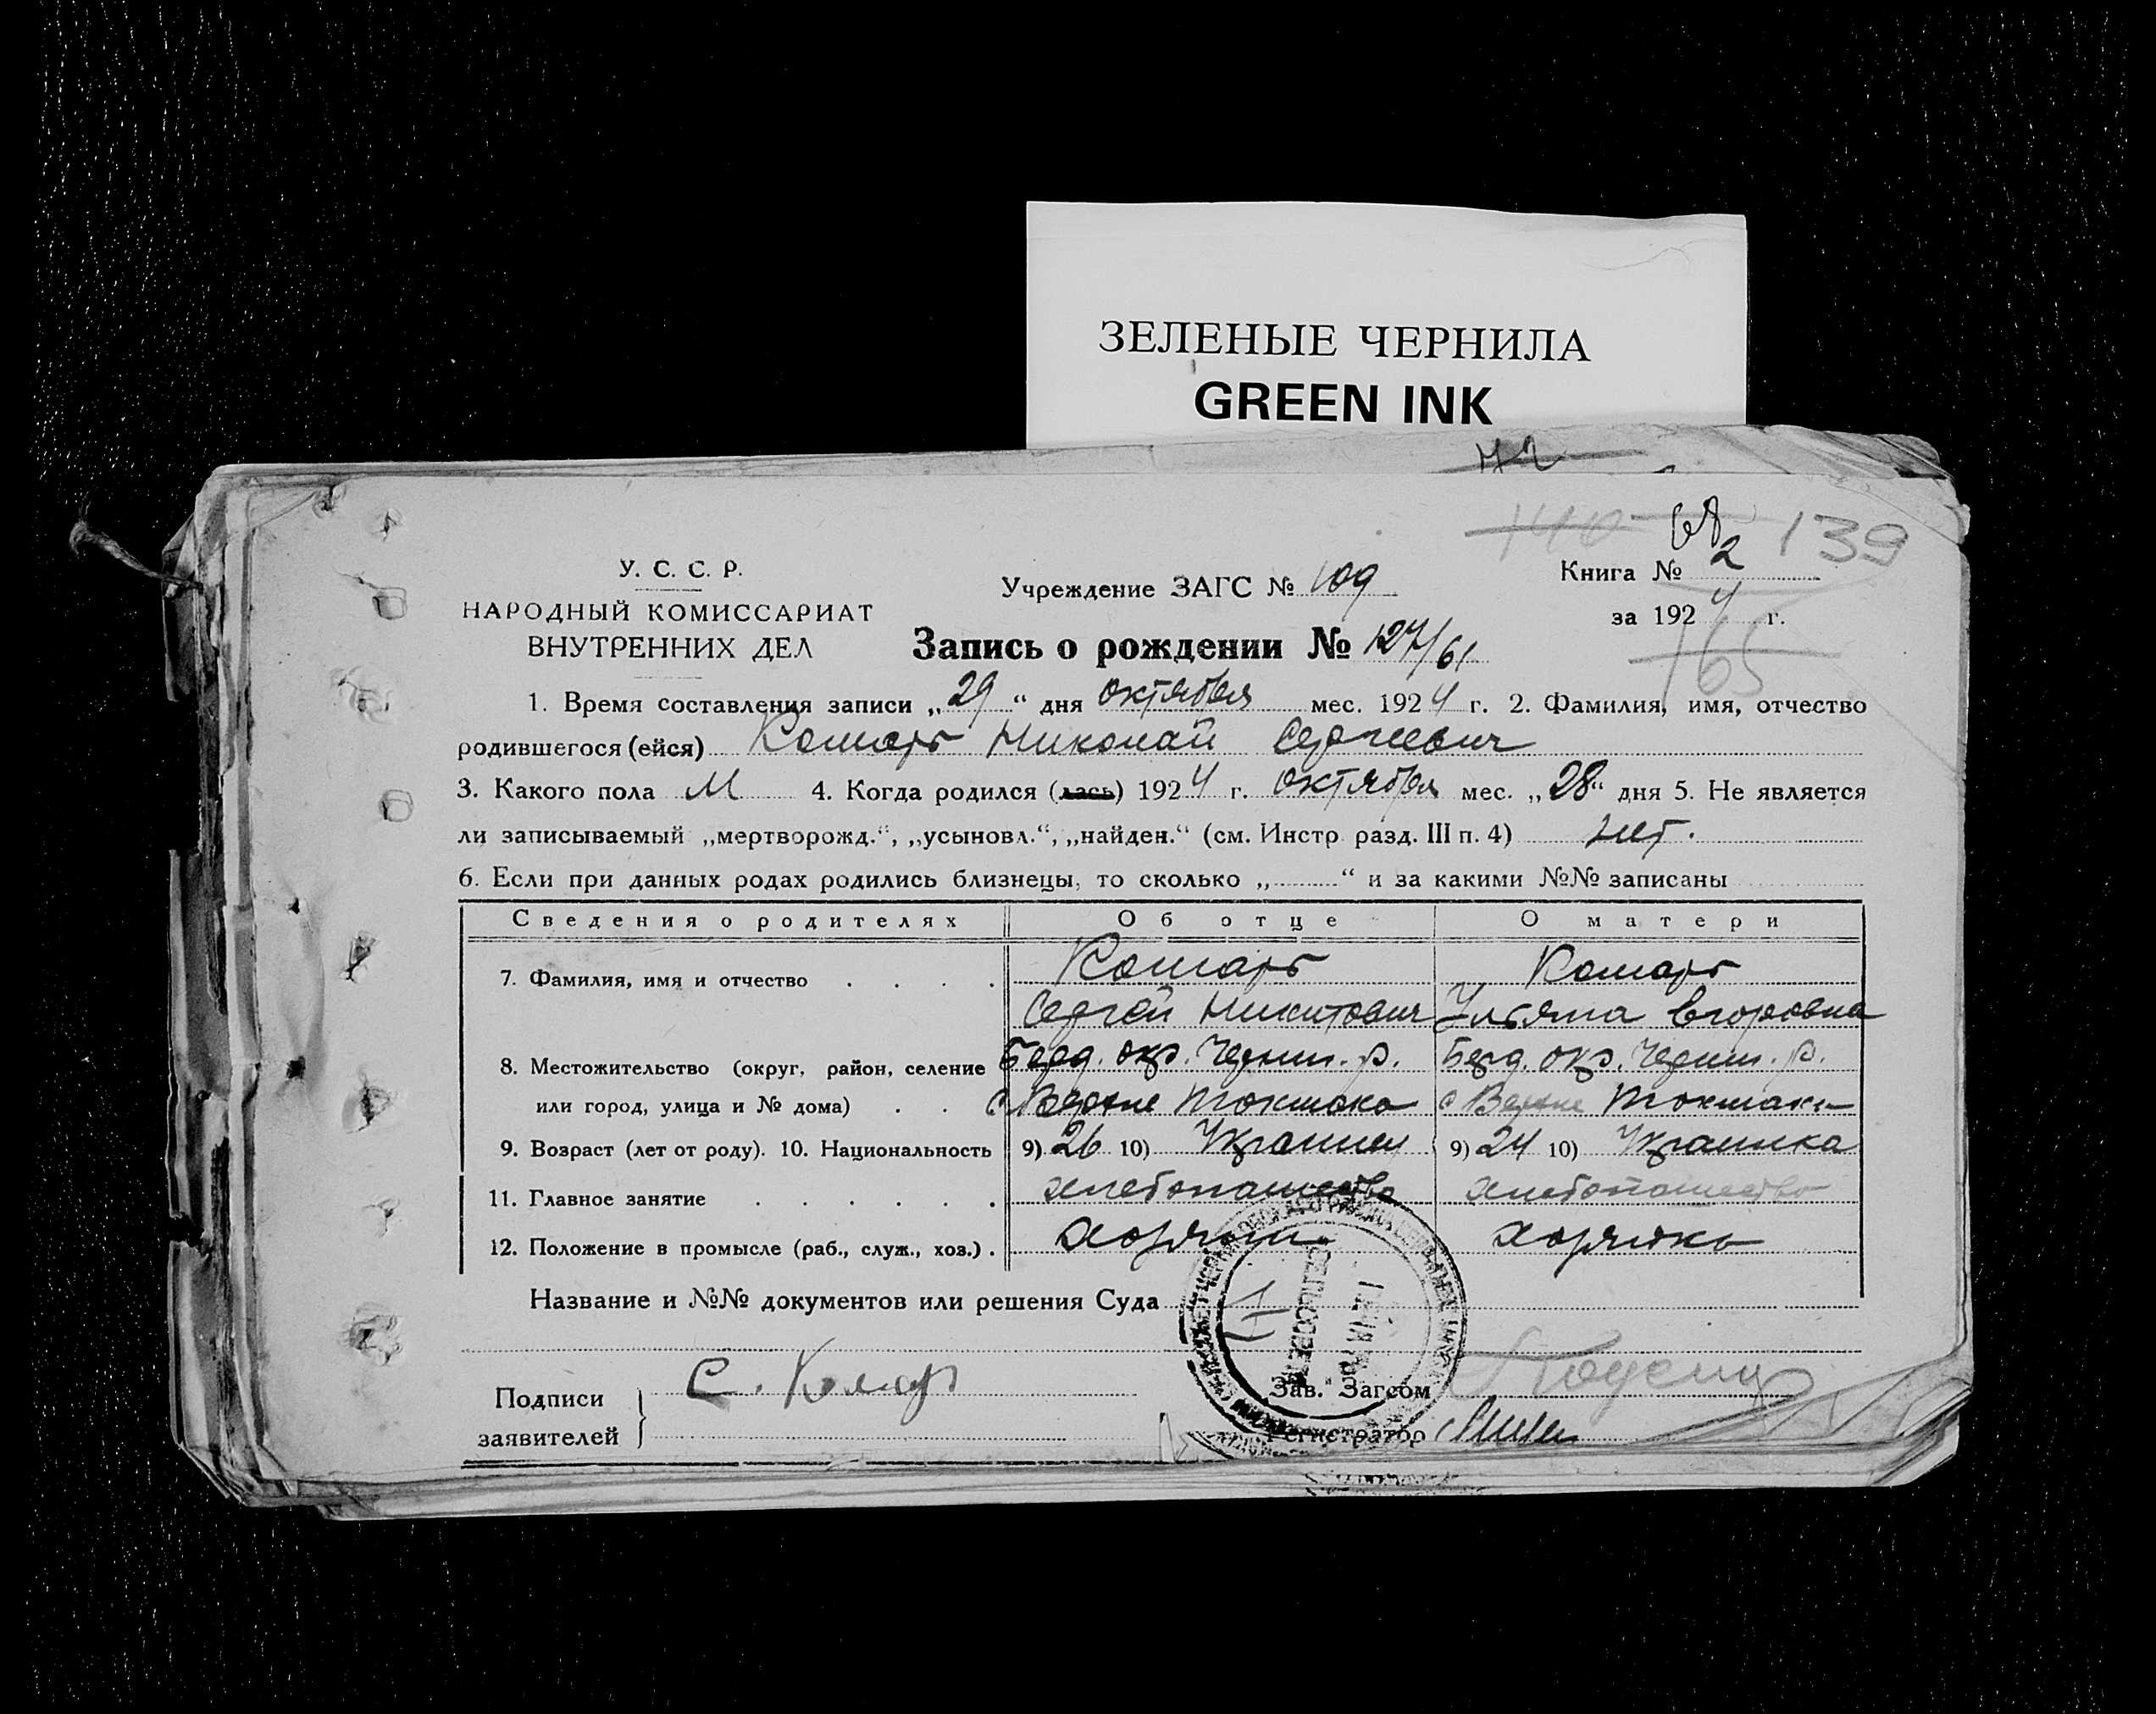 ЗЕЛЕНЫЕ ЧЕРНИЛА
GREEN INK
140 68 139
У. С. С. Р.
НАРОДНЫЙ КОМИССАРИАТ
ВНУТРЕННИХ ДЕЛ
Учреждение ЗАГС № 109
Книга № 2
за 1924 г.
165
Запись о рождении № 127/61
1. Время составления записи „29“ дня октября мес. 1924 г. 2. Фамилия, имя, отчество
родившегося (ейся) Комарь Николай Сергеевич
3. Какого пола М 4. Когда родился (лась) 1924 г. октября мес. „28“ дня 5. Не является
ли записываемый „мертворожд.“, „усыновл.“, „найден.“ (см. Инстр. разд. III п. 4) нет.
6. Если при данных родах родились близнецы, то сколько „ “ и за какими №№ записаны
Сведения о родителях Об отце О матери
7. Фамилия, имя и отчество Комарь Комарь
Сергей Никитович Ульяна Егоровна
8. Местожительство (округ, район, селение Берд. окр. Черниг. р. Берд. окр. Черниг. р.
или город, улица и № дома) с Верхне Токмака с Верхне Токмака
9. Возраст (лет от роду). 10. Национальность 9) 26 10) Украинец 9) 24 10) Украинка
11. Главное занятие хлебопашество хлебопашество
12. Положение в промысле (раб., служ., хоз.) хозяин хозяйка
Название и №№ документов или решения Суда
Подписи заявителей С. Комарь
Зав. Загсом
Регистратор
СЕЛЬСОВЕТ